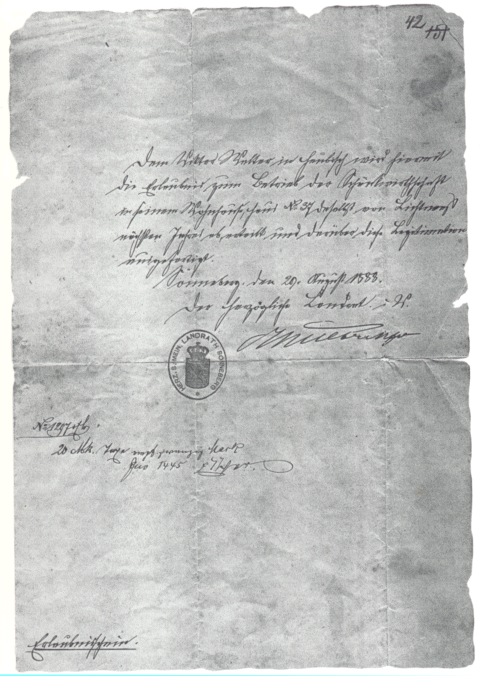 42
151
Dem Walter in Heubisch wird hiermit
die Erlaubnis zum Betrieb der Schankwirthschaft
in seinem Wohnhause Haus No 37 daselbst von Lichtmeß
nächsten Jahres ab ertheilt und darüber diese Legitimation
ausgefertigt.
Sonneberg, den 29. August 1888.
Der Herzogliche Landrat
HERZ. S. MEIN. LANDRATH SONNEBERG
20 Mk. Taxe zwanzig Mark
1445
Erlaubnisschein.